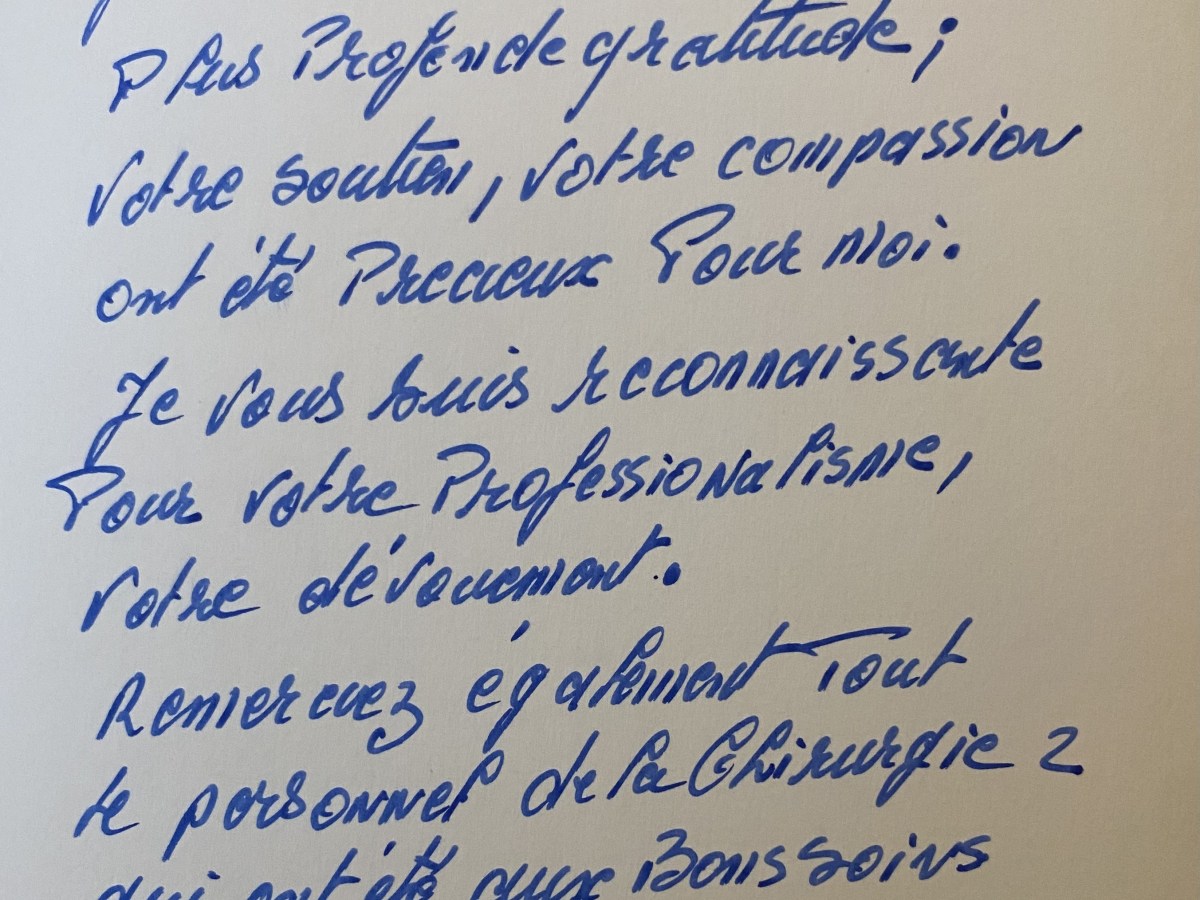 Plus Profonde gratitude ;
votre soutien, votre compassion
ont été Precieux Pour moi.
Je vous suis reconnaissante
Pour votre Professionalisme,
votre dévouement.
Remerciez également Tout
le personnel de la Chirurgie 2
qui ont été aux Bons soins